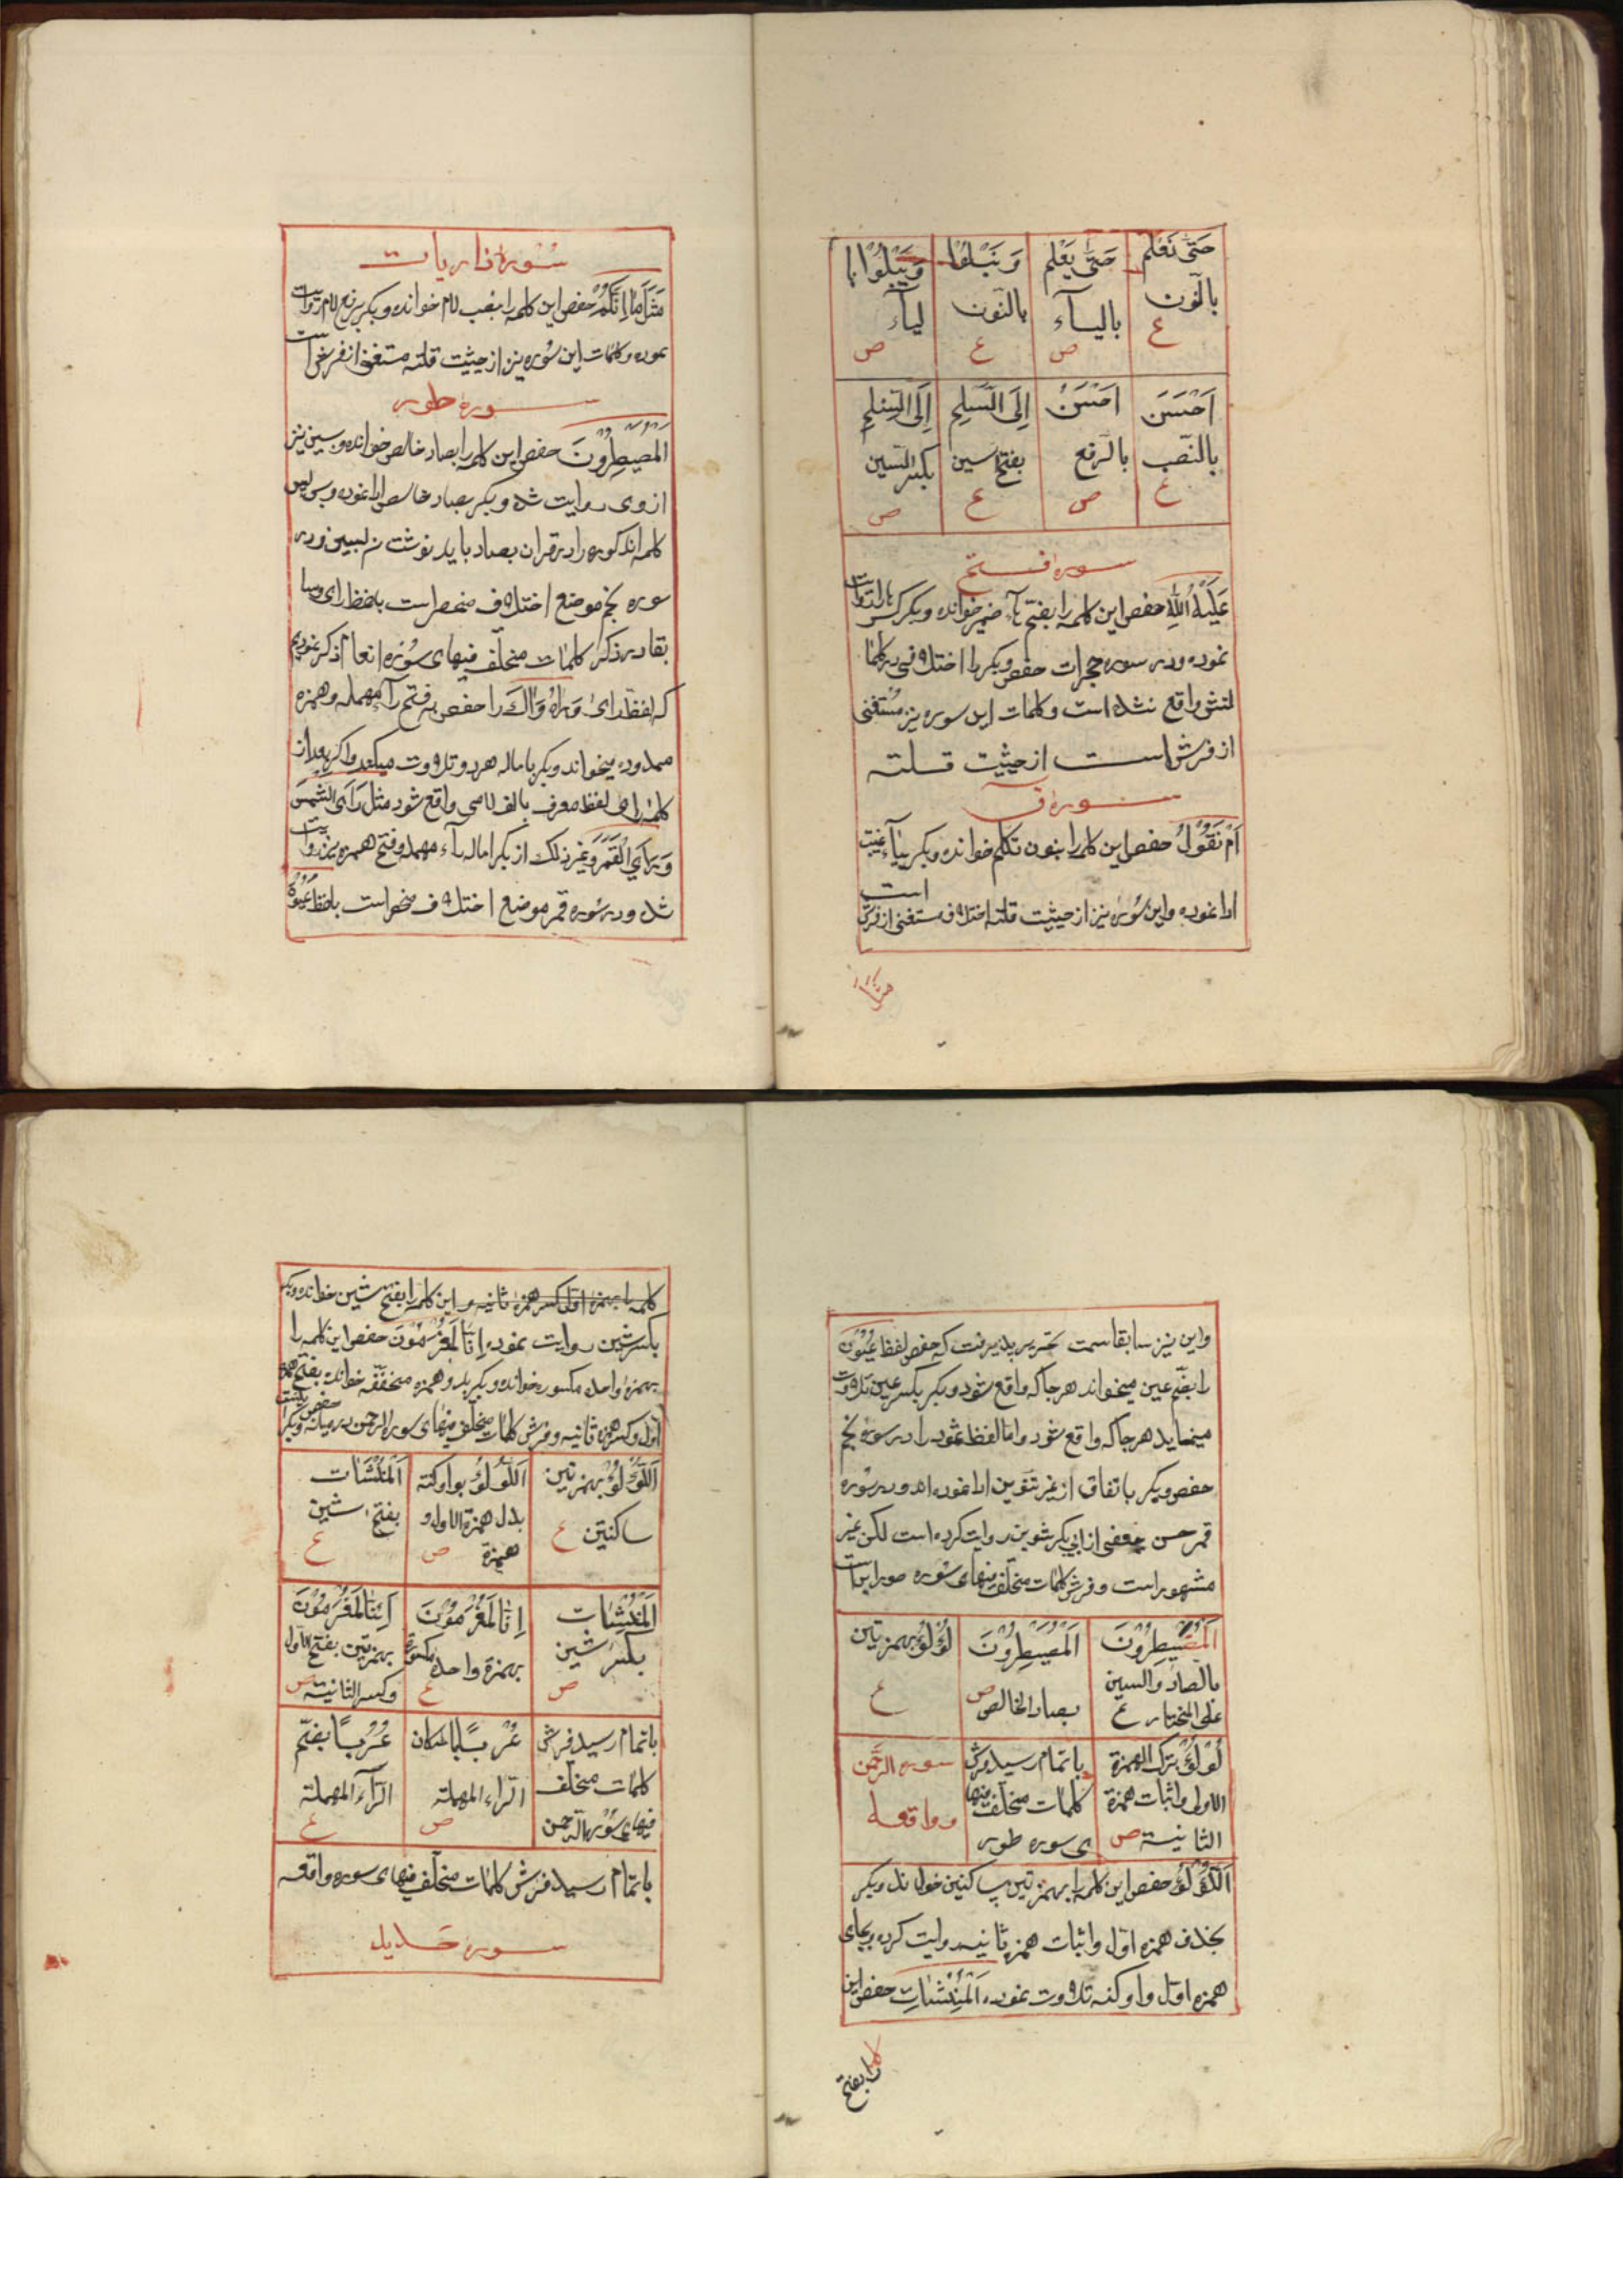 حَتّىٰ نَعْلَمَ بالنّون ع
حَتّىٰ يَعْلَمَ بالیآء ص
وَنَبْلُوَا بالنّون ع
وَيَبْلُوَا با لیآء ص
اَحْسَنَ بالنّصب ع
اَحْسَنُ بالرّفع ص
اِلَى السَّلمِ بفتح السین ع
اِلَى السِّلمِ بکسر السّین ص
سوره فتح
عَلَیْهُ اللّٰهَ حفص این کلمه را بفتح خوانده و بکر
نموده و در سوره حجرات حفص و بکر را اختلافی در کلمات
واقع نشده است و کلمات این سوره نیز مستغنی
از فرش است از حیثیت قلته
سوره ق
اَمْ نَقُوْلُ حفص این کلمه را بنون تکلم خوانده و بکر بیآء غیبت
ادا نموده و این سوره نیز از حیثیت قلته اختلاف مستغنی از فرش است
سوره ذاریات
مِثْلَ مَا اَنَّکُمْ حفص این کلمه را بنصب لام خوانده و بکر برفع لام روایت
نموده و کلمات این سوره نیز از حیثیت قلته مستغنی از فرش است
سوره طور
اَلْمُصَیْطِرُوْنَ حفص این کلمه را بصاد خالص خوانده و بسین نیز
از وی روایت شده و بکر بصاد خالص ادا نموده و بس پس
کلمه مذکوره را در قران بصاد باید نوشت نه بسین و در
سوره نجم موضع اختلاف منحصر است بلفظ رای و ما
بقا در ذکر کلمات مختلف فیهای سوره انعام ذکر نمودیم
که لفظ رَای وَ رَاهُ وَ رَاكَ را حفص به فتح رآء مهمله و همزه
ممدوده میخواند و بکر باماله هر دو تلاوت میکند و اگر بعد از
کلمه رای لفظ معرف بالف لامی واقع شود مثل رَاَی الشَّمْسَ
وَ رَاَی الْقَمَرَ و غیر ذلک از بکر اماله رآء مهمله و فتح همزه نیز روایت
شده و در سوره قمر موضع اختلاف منحصر است بلفظ عُیُوْنًا
واین نیز سابقا سمت تحریر پذیرفت که حفص لفظ عُیُوْن
را بضّم عین میخواند هر جا که واقع شود و بکر بکسر عین تلاوت
مینماید هر جا که واقع شود و اما لفظ ثمود را در سوره نجم
حفص و بکر باتفاق از غیر تنوین ادا نموده اند و در سوره
قمر حسن جعفی از ابی بکر شوین روایت کرده است لکن غیر
مشهور است و فرش کلمات مختلف فیهای سوره طور این است
اَلْمُصَیْطِرُوْنَ بالصاد و السین علی المختار ع
اَلْمُصَیْطِرُوْنَ بصاد الخالص ص
لُؤْلُؤٌ بهمزتین ع
لُوْلُؤٌ بترک الهمزة الاولی و اثبات همزة الثانیة ص
باتمام رسید فرش کلمات مختلف فیها ی سوره طور
سوره الرّحمن و واقعه
اَللُّؤْلُؤُ حفص این کلمه را بهمزتین ساکنین خوانده و بکر
بحذف همزه اوّل و اثبات همزه ثانیه روایت کرده و بجای
همزه اول واو کنه تلاوت نموده اَلْمُنْشَئَاتُ حفص این
را بفتح
کلمه را بهمزه اوّل بکسر همزه ثانیه و این کلمه را بفتح شین خوانده و بکر
بکسر شین روایت نموده اِنّا لَمُغْرَمُوْنَ حفص این کلمه را
بهمزه واحده مکسوره خوانده و بکر بدو همزه مخففّه خوانده بفتح همزه
اوّل و کسر همزه ثانیه و فرش کلمات مختلف فیهای سوره الرحمن در میانه حفص و بکر
اَللُّؤْلُؤُ بهمزتین ساکنتین ع
اَللُّوْلُؤُ بواو کنه بدل همزة الاول و همزة ص
اَلْمُنْشَئَات بفتح شین ع
اَلْمُنْشِئَات بکسر شین ص
اِنّا لَمُغْرَمُوْنَ بهمزة واحده مکسورة ع
اَئِنّا لَمُغْرَمُوْنَ بهمزتین بفتح الاول و کسر الثانیة ص
باتمام رسید فرش کلمات مختلف فیهای سوره الرّحمن
عُرْبًا باسکان الرّاء المهملة ص
عُرُبًا بضمّ الرّآء المهملة ع
باتمام رسید فرش کلمات مختلف فیهای سوره واقعه
سوره حدید